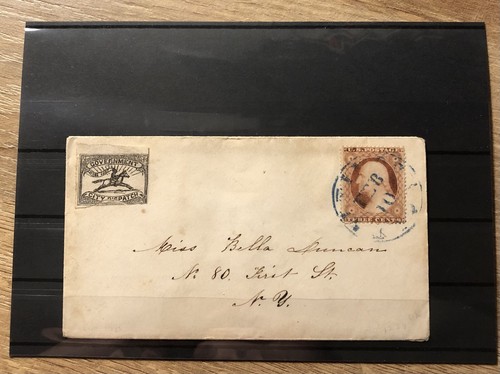 GOVERNMENT
CITY DISPATCH
U.S. POSTAGE
FEB
10
THREE CENTS
Miss Bella Duncan
No 80. First St.
N. Y.